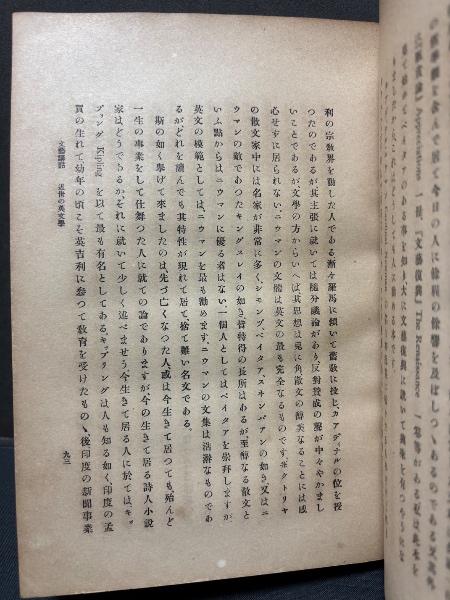 利の宗敎界を動した人である漸々羅馬に傾いて舊敎に投じ、カアデイナルの位を授
つたのであるが其主張に就いては隨分議論があり、反對贊成の聲が中々やかまし
いことであるが文學の方からいへば其思想は兎に角散文の醇美なることには感
心せずに居られない、ニウマンの文體は英文の最も完全なるものです、ヰクトリヤ
の散文家中には名家が非常に多く、シモンヅ、ペイタア、スヰンバアンの如き又はニ
ウマンの敵であつたキングスレイの如き、皆特得の長所はあるが至醇なる散文と
いふ點からはニウマンに優る者はない、一個人としてはペイタアを崇拜しますが
英文の模範としては、ニウマンを最も勸めます、ニウマンの文集は浩瀚なものであ
るがどれを讀んでも其特性が現れて居て、捨て難い名文である。
斯の如く擧げて來ましたのは先づ亡くなつた人、或は今生きて居つても殆んど
一生の事業をして仕舞つた人に就ての論でありますが今の生きて居る詩人小說
家はどうであるか、それに就いて少しく述べませう今生きて居る人に於ては、キッ
プリング Kipling を以て最も有名としてある、キップリングは人も知る如く印度の孟
買の生れで幼年の頃こそ英吉利に參つて敎育を受けたもの、後印度の新聞事業
文藝講話 近世の英文學
九三